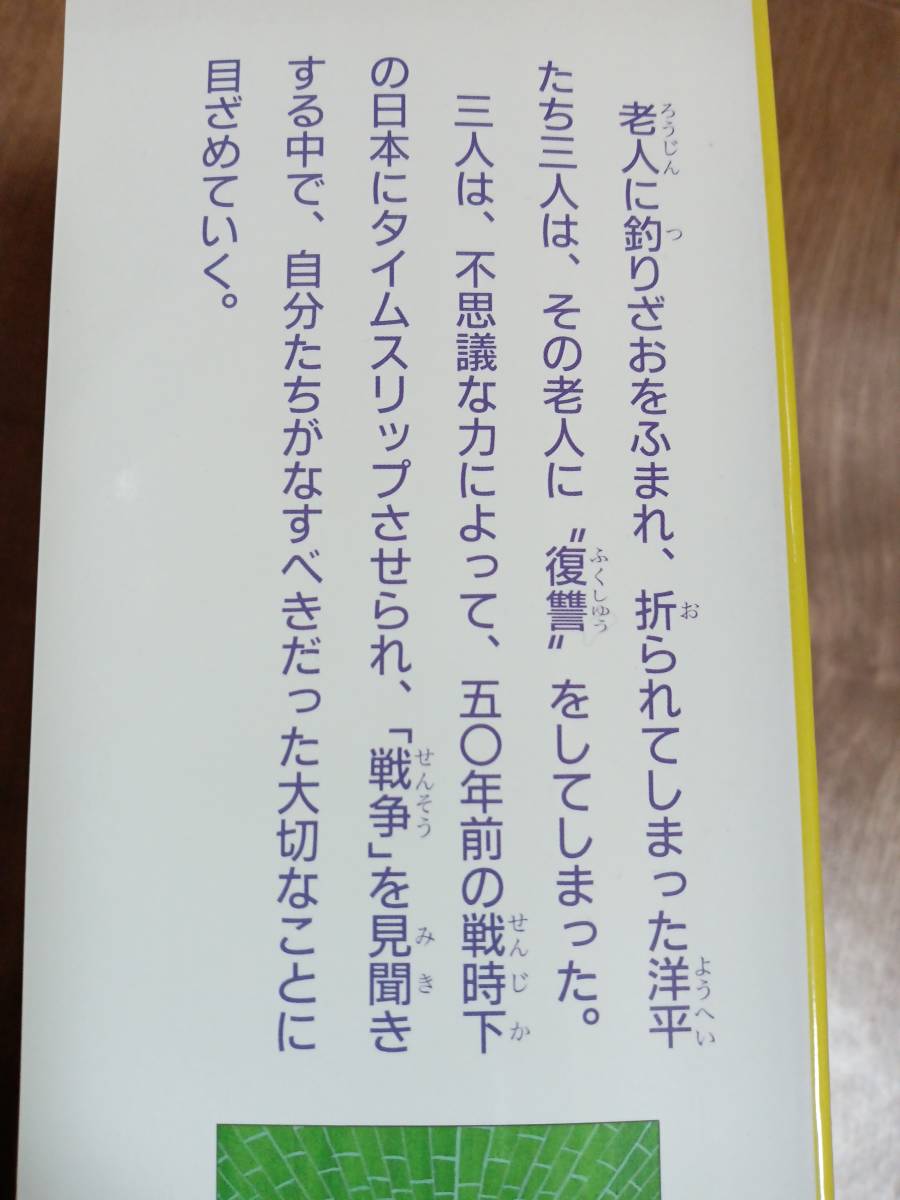 老人に釣りざおをふまれ、折られてしまった洋平
たち三人は、その老人に〝復讐〟をしてしまった。
三人は、不思議な力によって、五〇年前の戦時下
の日本にタイムスリップさせられ、「戦争」を見聞き
する中で、自分たちがなすべきだった大切なことに
目ざめていく。